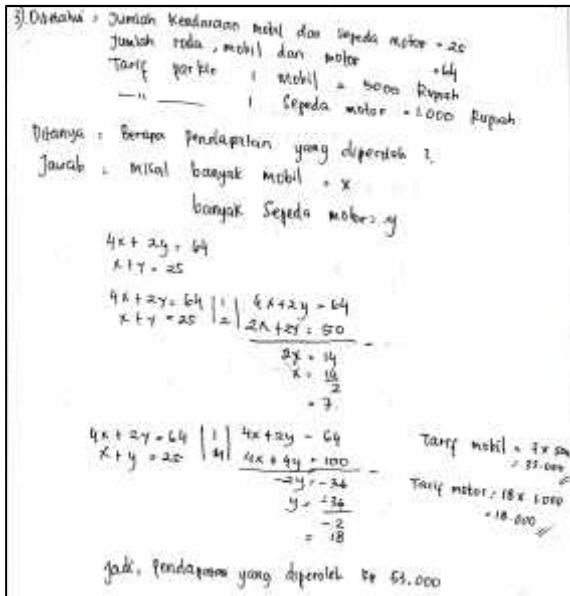 3) Diketahui : Jumlah Kendaraan mobil dan sepeda motor = 25
Jumlah roda, mobil dan motor = 64
Tarif parkir 1 mobil = 5000 Rupiah
—"— 1 Sepeda motor = 1.000 Rupiah
Ditanya : Berapa pendapatan yang diperoleh ?
Jawab : misal banyak mobil = x
banyak Sepeda motor = y
4x + 2y = 64
x + y = 25
4x + 2y = 64 | 1 | 4x + 2y = 64
x + y = 25 | 2 | 2x + 2y = 50 -
2x = 14
x = 14/2
= 7
4x + 2y = 64 | 1 | 4x + 2y = 64
x + y = 25 | 4 | 4x + 4y = 100 -
-2y = -36
y = -36/-2
= 18
Tarif mobil = 7 x 5000
= 35.000 //
Tarif motor = 18 x 1.000
= 18.000 //
Jadi, Pendapatan yang diperoleh Rp 53.000